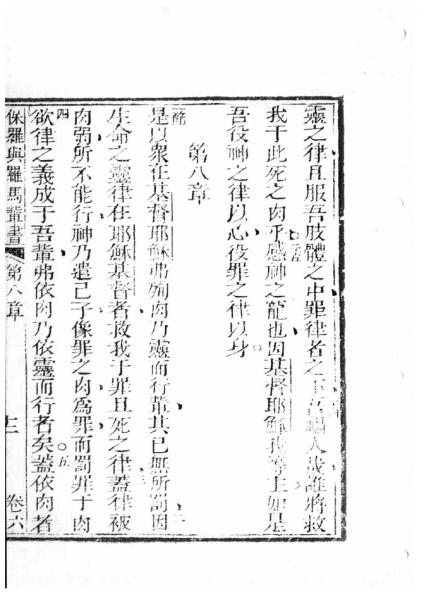 靈之律且服吾肢體之中罪律者之下吾人哉誰將救
我于此死之肉乎感神之寵也因基督耶穌我等主如是
吾役神之律以心役罪之律以身
第八章
是以衆在基督耶穌弗殉肉乃靈而行輩其已無所罰因
二
生命之靈律在耶穌基督者救我于罪且死之律蓋律被
三
肉弱所不能行神乃遣己子像罪之肉為罪而罰罪于肉
四
欲律之義成于吾輩弗依肉乃依靈而行者矣蓋依肉者
五
保羅與羅馬輩書 第八章 十二 卷六